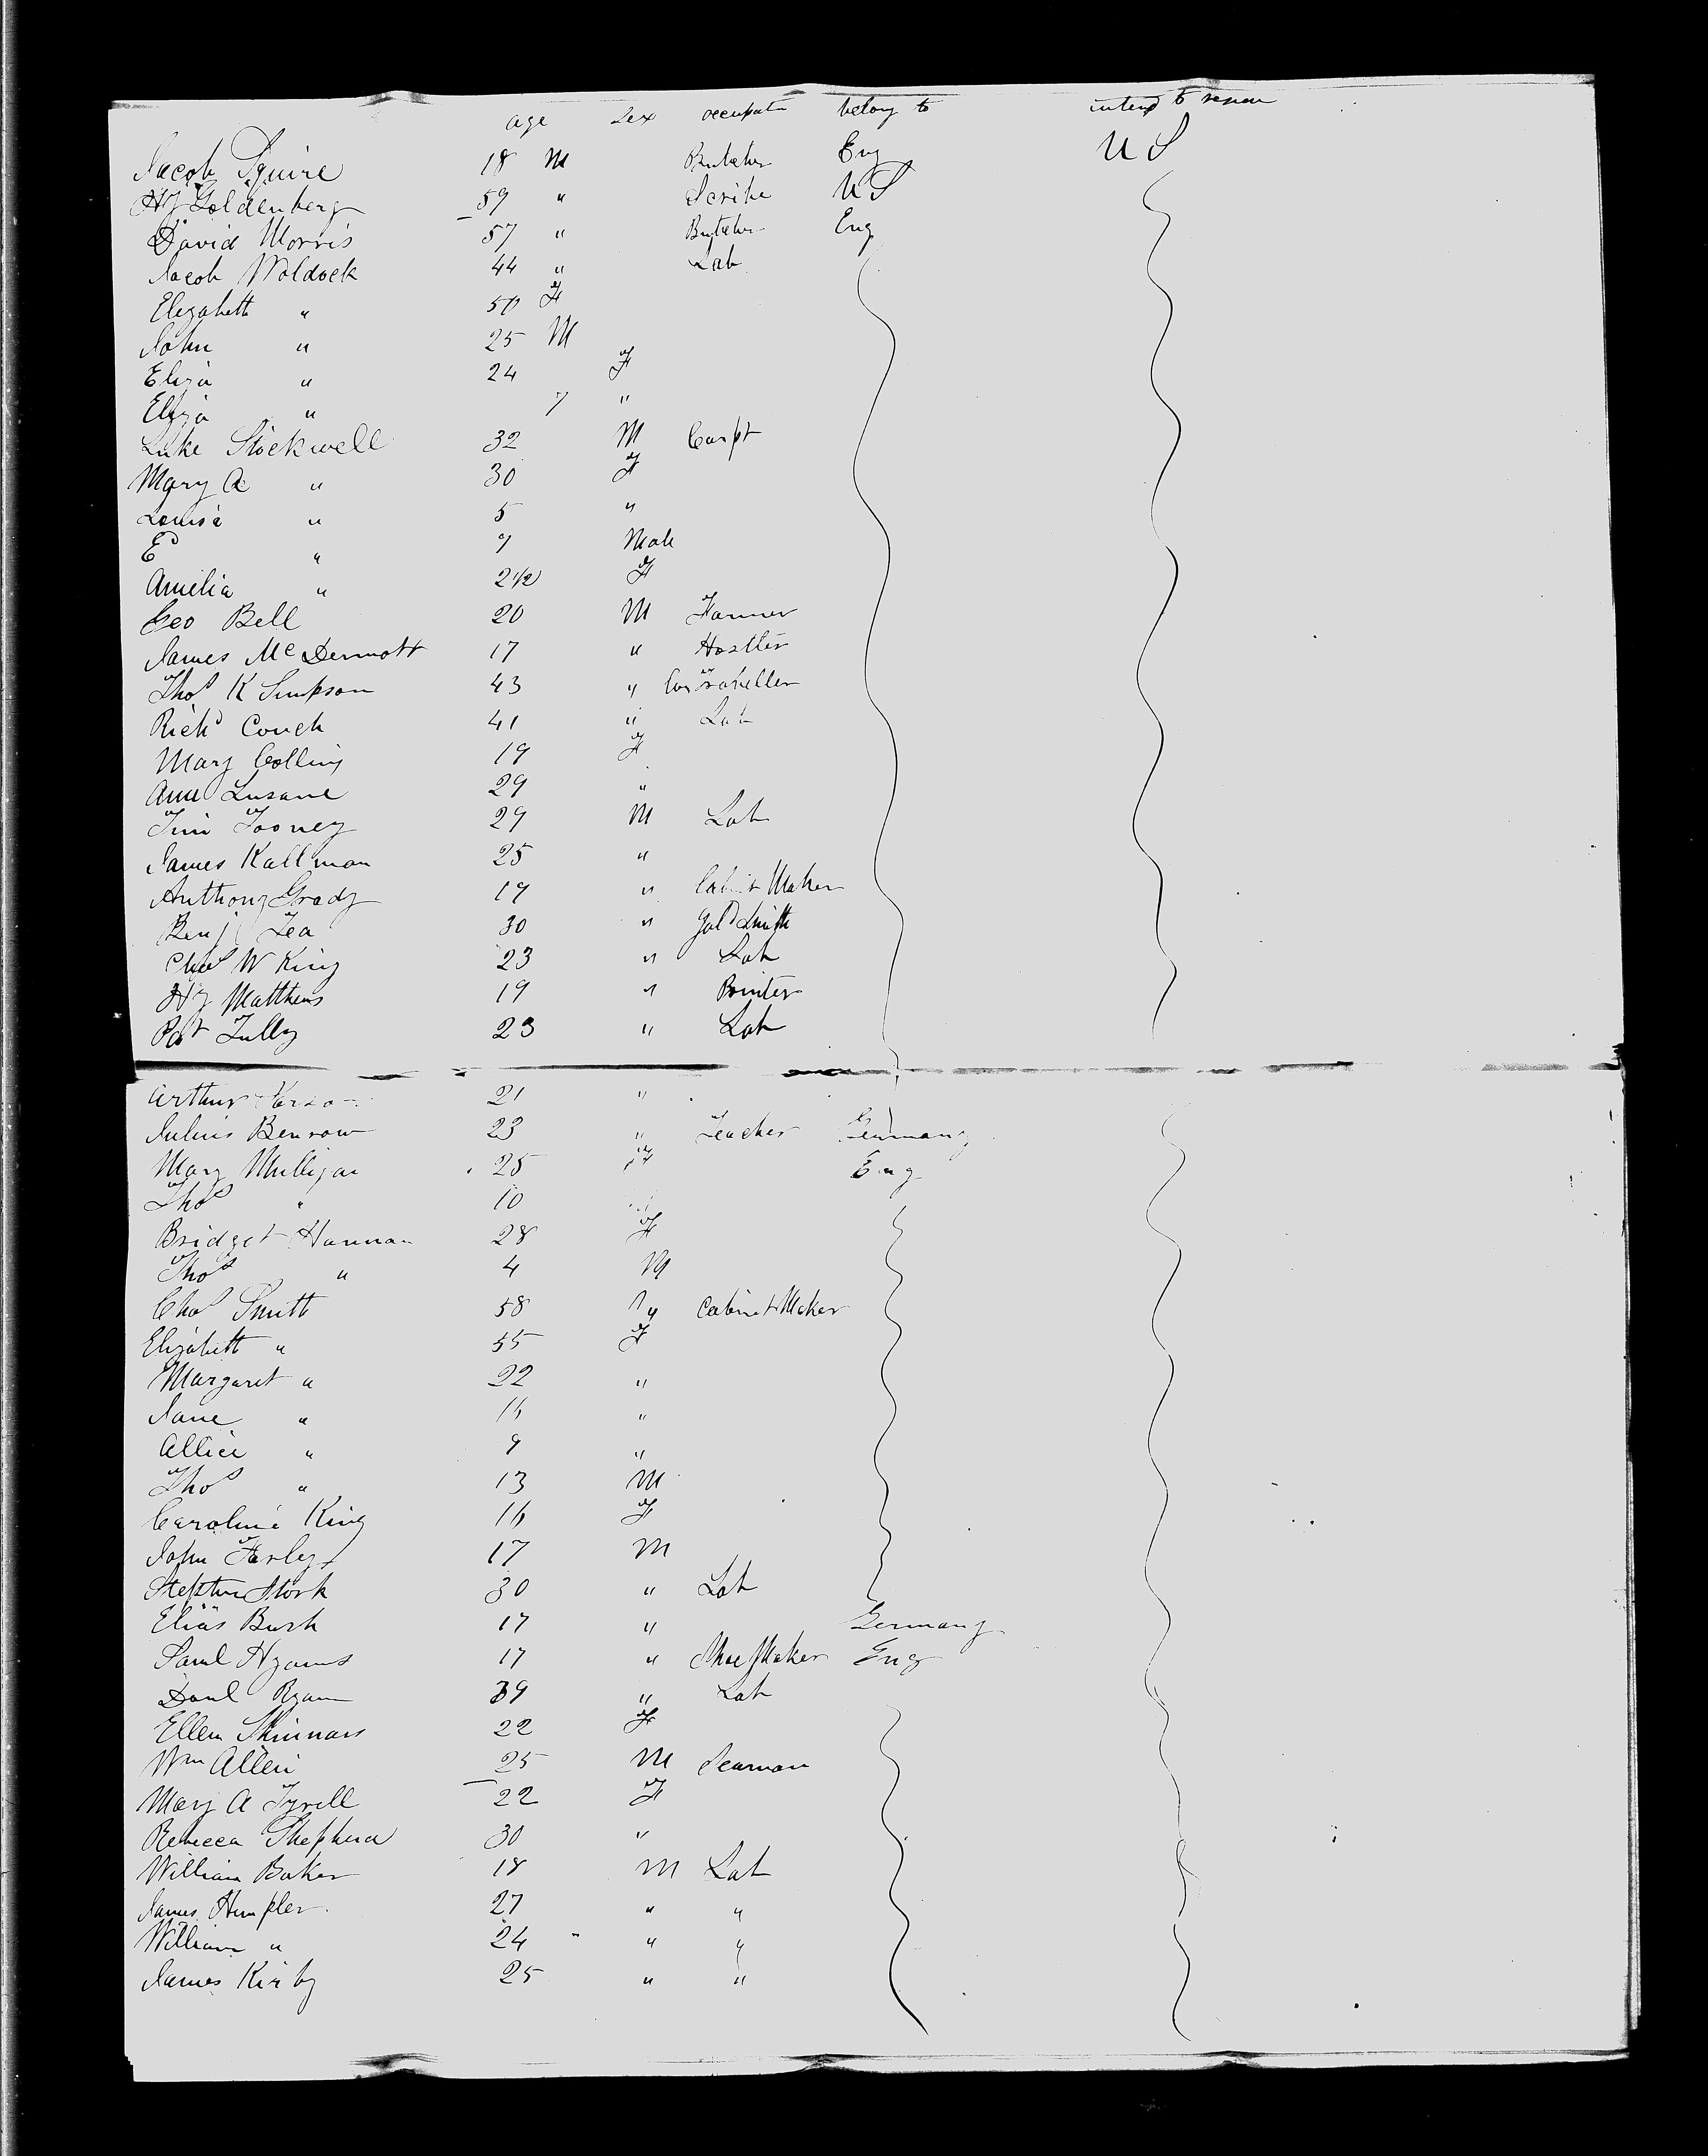 age Sex occupatn belong to intend to
Jacob Squire 18 M Butcher Eng U S
Hy Goldenberg 59 " Scribe U S
David Morris 57 " Butcher Eng
Jacob Woldock 44 " Lab
Elizabeth " 50 F
John " 25 M
Eliza " 24 F
Eliza " 7 "
Luke Stockwell 32 M Carpt
Mary A " 30 F
Louisa " 5 "
Ed " 7 Male
Amelia " 2 1/2 F
Geo Bell 20 M Farmer
James McDermott 17 " Hostler
Thos K Simpson 43 " Traveller
Richd Couch 41 " Lab
Mary Collins 19 F
Ann Lusane 29 "
Tim Tooney 29 M Lab
James Kallman 25 "
Anthony Grady 19 " Cabinet Maker
Benj Lea 30 " Gold Smith
Chas W King 23 " Lab
Hy Matthews 19 " Printer
Pat Tully 23 " Lab
Arthur 21 "
Julius Benrow 23 " Teacher Germany
Mary Mulligan 25 F Eng
Thos " 10
Bridget Hannan 28 F
Thos " 4 M
Chas Smith 58 " Cabinet Maker
Elizabeth " 55 F
Margaret " 22 "
Jane " 16 "
Allice " 9 "
Thos " 13 M
Caroline King 16 F
John Farley 17 M
Stephen Stork 30 " Lab
Elias Bush 17 " Germany
Saml Hyams 17 " Shoe Maker Eng
Danl Ryan 39 " Lab
Ellen Skinnars 22 F
Wm Allen 25 M Seaman
Mary A Tyrell 22 F
Rebecca Shepherd 30 "
William Baker 18 M Lab
James Humpler 27 " "
William " 24 " " "
James Kirby 25 " "